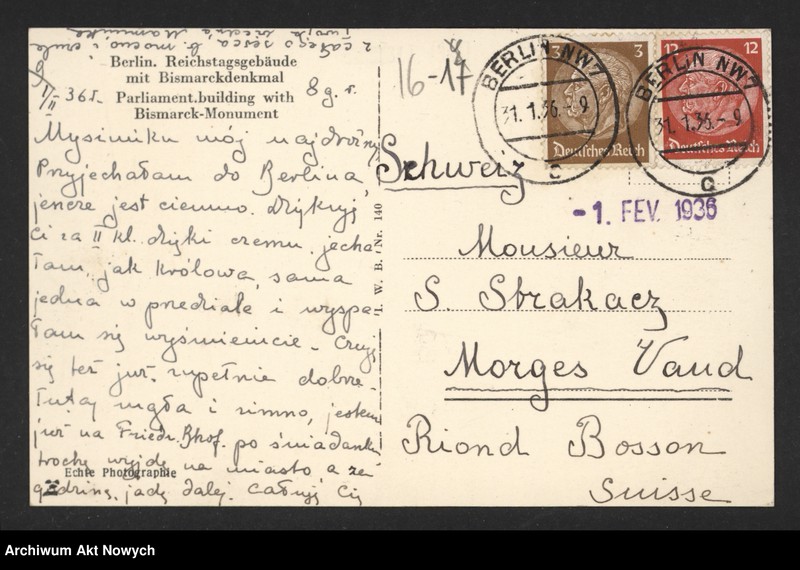 Berlin. Reichstagsgebäude
mit Bismarckdenkmal
Parliament.building with
Bismarck-Monument
8 g. r.
Mysiuniku mój najdroższy
Przyjechałam do Berlina,
jeszcze jest ciemno. Dziękuję
Ci za II kl. dzięki czemu jecha
łam, jak Królowa, sama
jedna w przedziale i wyspa
łam się wyśmienicie. Czuję
się też już zupełnie dobrze.
Tutaj mgła i zimno, jestem
już na Friedr. Bhof. po śniadaniu
trochę wyjdę na miasto, a za
godzinę, jadę dalej. Całuję Cię
z całego serca b. mocno i czule
Twoja
Echte Photographie
I. W. B. Nr. 140
16-17
BERLIN NW7
31.1.36.-9
C
BERLIN NW7
31.1.36.-9
C
3
3
Deutsches Reich
12
12
Deutsches Reich
Schweiz
-1. FEV. 1936
Monsieur
S. Strakacz
Morges Vaud
Riond Bosson
Suisse
Archiwum Akt Nowych